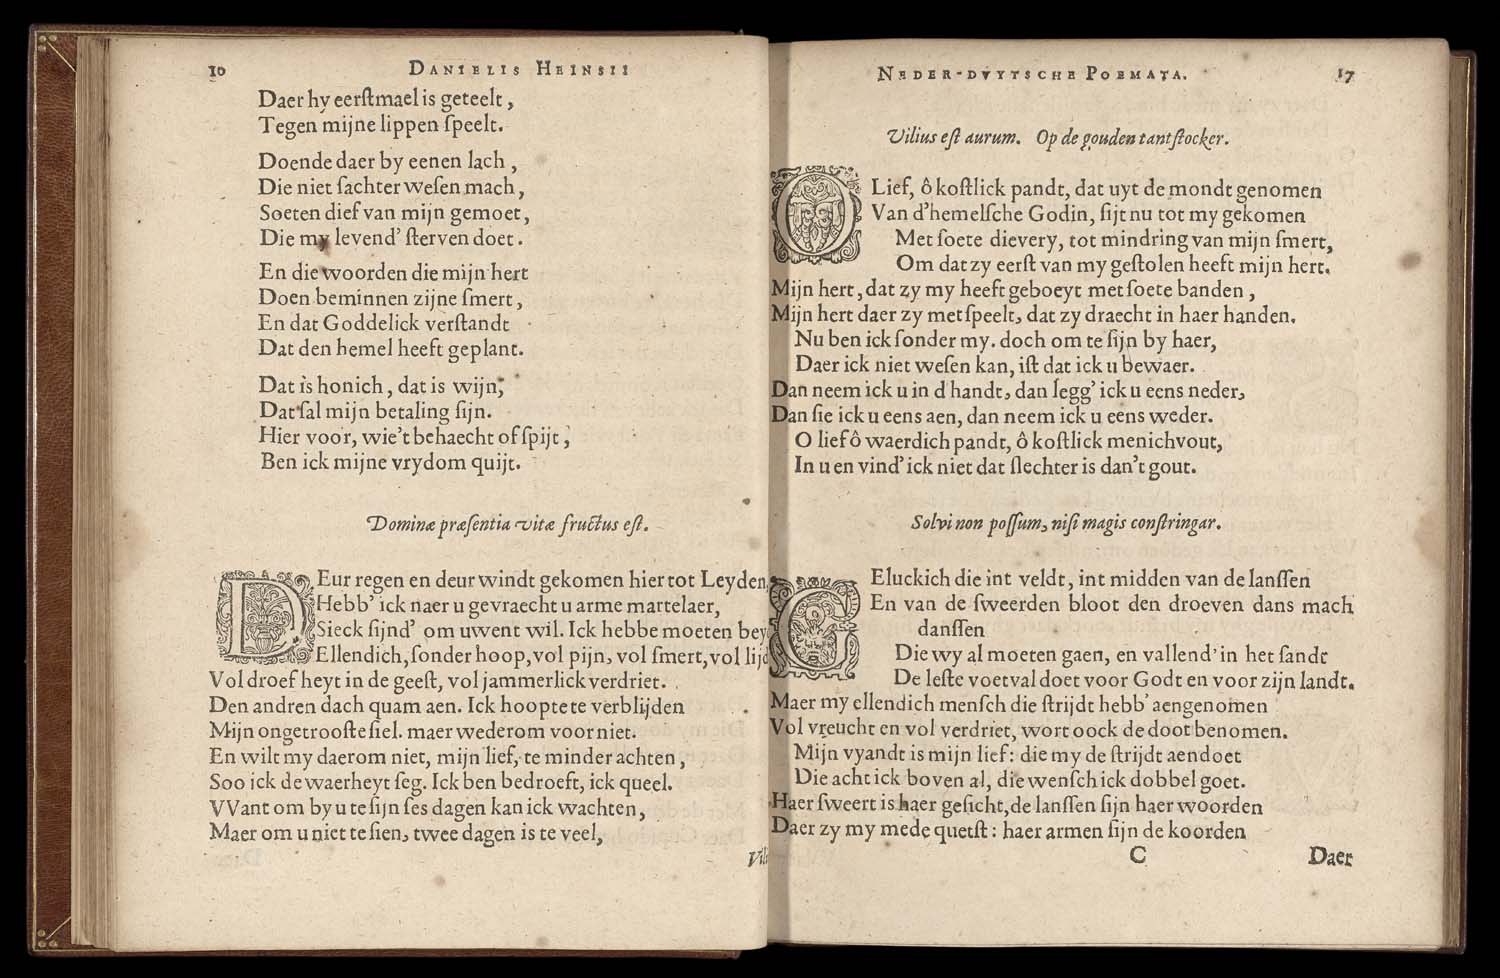 10 DANIELIS HEINSII
Daer hy eerſtmael is geteelt,
Tegen mijne lippen ſpeelt.
Doende daer by eenen lach,
Die niet ſachter weſen mach,
Soeten dief van mijn gemoet,
Die my levend' ſterven doet.
En die woorden die mijn hert
Doen beminnen zijne ſmert,
En dat Goddelick verſtandt
Dat den hemel heeft geplant.
Dat is honich, dat is wijn,
Dat ſal mijn betaling ſijn.
Hier voor, wie't behaecht of ſpijt,
Ben ick mijne vrydom quijt.
Dominæ præſentia vitæ fructus eſt.
DEur regen en deur windt gekomen hier tot Leyden,
Hebb' ick naer u gevraecht u arme martelaer,
Sieck ſijnd' om uwent wil. Ick hebbe moeten bey
Ellendich, ſonder hoop, vol pijn, vol ſmert, vol lijd
Vol droef heyt in de geeſt, vol jammerlick verdriet.
Den andren dach quam aen. Ick hoopte te verblijden
Mijn ongetrooſte ſiel. maer wederom voor niet.
En wilt my daerom niet, mijn lief, te minder achten,
Soo ick de waerheyt ſeg. Ick ben bedroeft, ick queel.
VVant om by u te ſijn ſes dagen kan ick wachten,
Maer om u niet te ſien, twee dagen is te veel,
Vili
NEDER-DVYTSCHE POEMATA. 17
Vilius eſt aurum. Op de gouden tantſtocker.
O Lief, ô koſtlick pandt, dat uyt de mondt genomen
Van d'hemelſche Godin, ſijt nu tot my gekomen
Met ſoete dievery, tot mindring van mijn ſmert,
Om dat zy eerſt van my geſtolen heeft mijn hert.
Mijn hert, dat zy my heeft geboeyt met ſoete banden,
Mijn hert daer zy met ſpeelt, dat zy draecht in haer handen.
Nu ben ick ſonder my. doch om te ſijn by haer,
Daer ick niet weſen kan, iſt dat ick u bewaer.
Dan neem ick u in d'handt, dan ſegg' ick u eens neder,
Dan ſie ick u eens aen, dan neem ick u eens weder.
O lief ô waerdich pandt, ô koſtlick menichvout,
In u en vind' ick niet dat ſlechter is dan't gout.
Solvi non poſſum, niſi magis conſtringar.
GEluckich die int veldt, int midden van de lanſſen
En van de ſweerden bloot den droeven dans mach
danſſen
Die wy al moeten gaen, en vallend' in het ſandt
De leſte voetval doet voor Godt en voor zijn landt.
Maer my ellendich menſch die ſtrijdt hebb' aengenomen
Vol vreucht en vol verdriet, wort oock de doot benomen.
Mijn vyandt is mijn lief: die my de ſtrijdt aendoet
Die acht ick boven al, die wenſch ick dobbel goet.
Haer ſweert is haer geſicht, de lanſſen ſijn haer woorden
Daer zy my mede quetſt: haer armen ſijn de koorden
C Daer